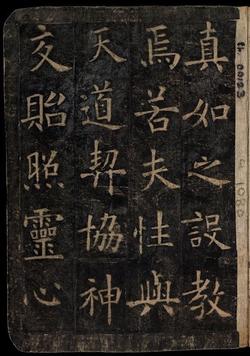 真如之設教
焉若夫性與
天道契協神
交貽照靈心